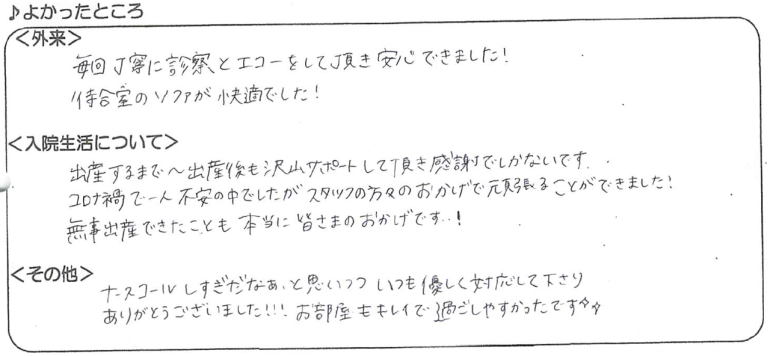 ♪よかったところ
<外来>
毎回丁寧に診察とエコーをして頂き安心できました!
待合室のソファが快適でした!
<入院生活について>
出産するまで〜出産後も沢山サポートして頂き感謝でしかないです。
コロナ禍で一人不安の中でしたがスタッフの方々のおかげで頑張ることができました!
無事出産できたことも本当に皆さまのおかげです!
<その他>
ナースコールしすぎだなぁ、と思いつつ いつも優しく対応して下さり
ありがとうございました!!! お部屋もキレイで過ごしやすかったです✧✧